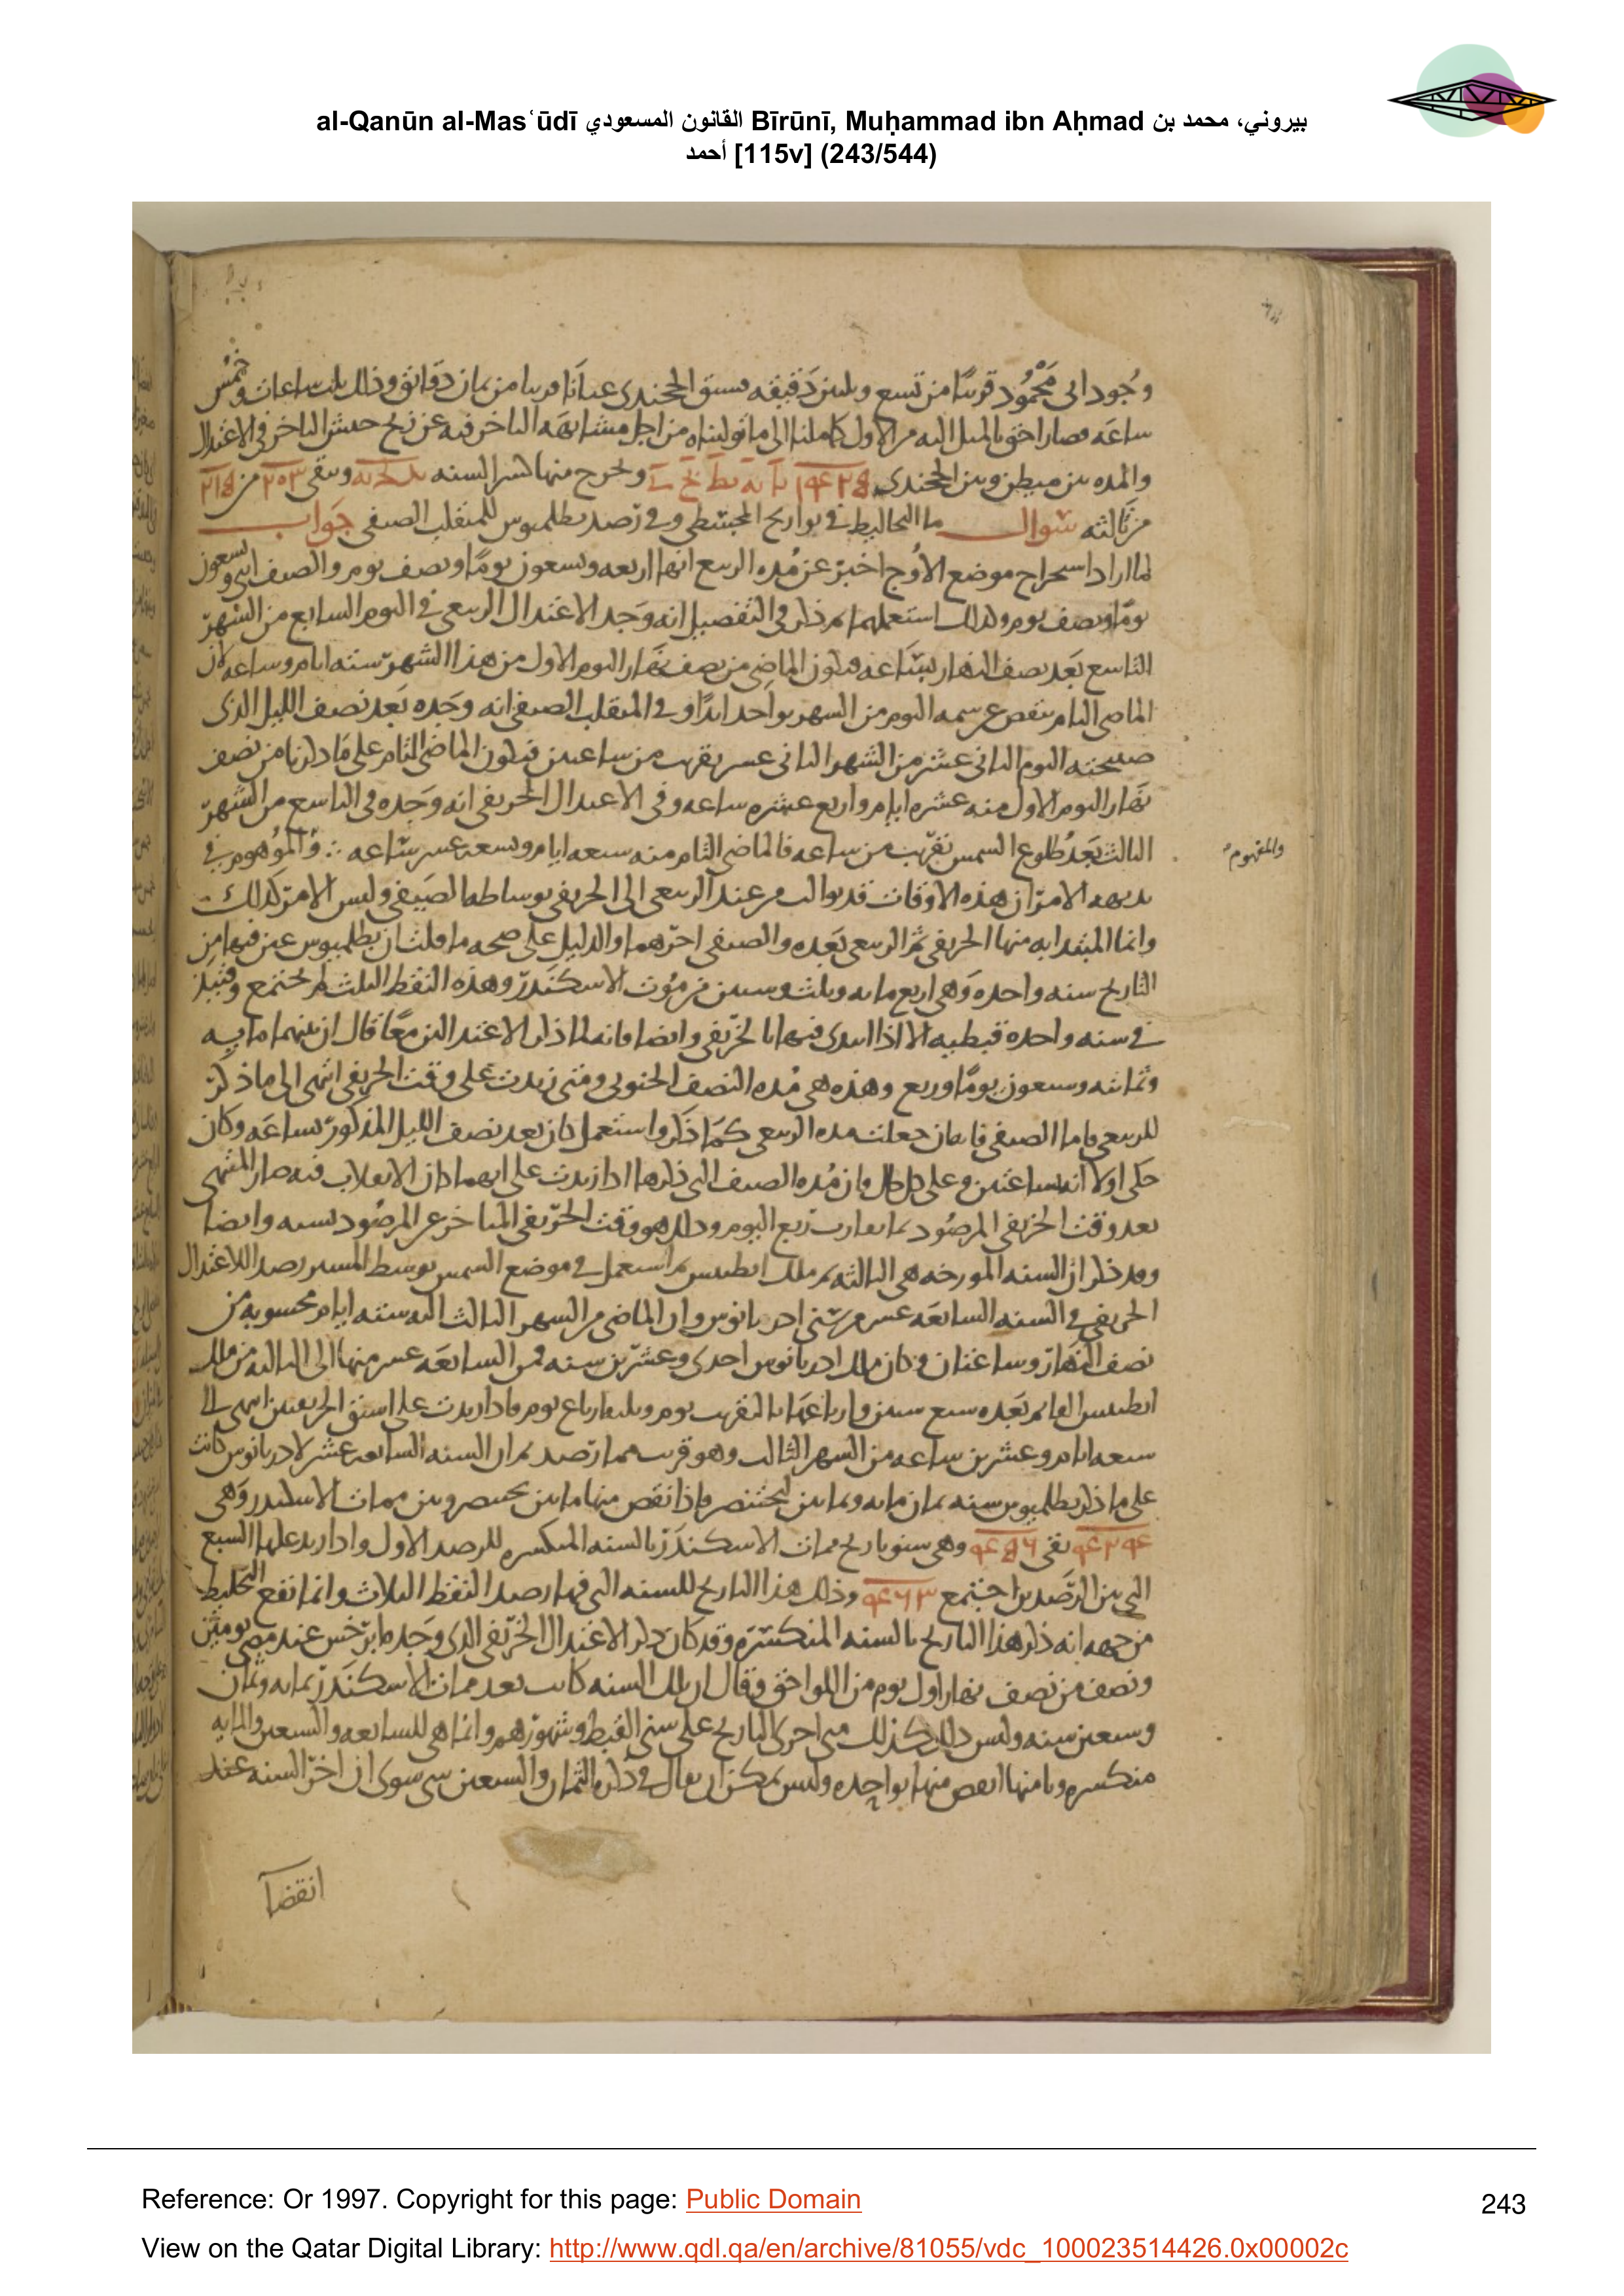 al-Qanūn al-Masʿūdī القانون المسعودي Bīrūnī, Muḥammad ibn Aḥmad بيروني، محمد بن
أحمد [115v] (243/544)
وجود ابى محمود قريبًا من تسع وثلثين دقيقه فسبق الخجندى عيانًا قريبا من ثمان دقائق وذلك ثلث ساعات وخمس
ساعه فصار احق بالميل اليه من الاول
والمده بين ميطن وبين الخجندى ويخرج منها كسر السنه ويبقى من
من ثالثه سوال ما التخاليط فى تواريخ المجسطى وفى رصد بطلميوس للمنقلب الصيفى جواب
لما اراد استخراج موضع الاوج اخبر عن مده الربيع انها اربعه وتسعون يومًا ونصف يوم والصيف اثنى وتسعون
يومًا ونصف يوم وكذلك استعملهما ثم ذكر فى التفصيل انه وجد الاعتدال الربيعى فى اليوم السابع من الشهر
التاسع بعد نصف النهار بساعه فيكون الماضى من نصف نهار اليوم الاول من هذا الشهر سته ايام وساعه لان
الماضى التام ينقص عن سمه اليوم من الشهر بواحد ابدًا وفى المنقلب الصيفى انه وجده بعد نصف الليل الذى
صبيحته اليوم الثانى عشر من الشهر الثانى عشر بقريب من ساعتين فيكون الماضى التام على ما ذكرنا من نصف
نهار اليوم الاول منه عشره ايام واربع عشره ساعه وفى الاعتدال الخريفى انه وجده فى التاسع من الشهر
الثالث بعد طلوع الشمس بقريب من ساعه فالماضى التام منه سبعه ايام وتسعه عشر ساعه والموهوم فى
والمفهوم
بديهه الامر ان هذه الاوقات قد توالت من عند الربيعى الى الخريفى بوساطه الصيفى وليس الامر كذلك
وانما المبتدا به منها الخريفى ثم الربيعى بعده والصيفى اخرهما والدليل على صحه ما قلت ان بطلميوس عين فيها من
التاريخ سنه واحده وهى اربع مايه وثلث وستين من موت الاسكندر وهذه النقط الثلث لم تجتمع وقتئذ
فى سنه واحده قبطيه الا اذا ابتدى فيها بالخريفى وايضا فانه لما ذكر الاعتدالين معًا قال ان بينهما مايه
وثمانيه وسبعون يومًا وربع وهذه هى مده النصف الجنوبى ومتى زيدت على وقت الخريفى انتهى الى ما ذكر
للربيعى فاما الصيفى فانه ان جعلت مده الربيعى كما ذكر واستعمل كان بعد نصف الليل المذكور بساعه وكان
حكى اولا انه بساعتين وعلى كل حال فان مده الصيف التى ذكرها اذا زيدت على ايهما كان الانقلاب فيه صار المنتهى
بعد وقت الخريفى المرصود بما يقارب ربع اليوم وذلك هو وقت الخريفى المتاخر عن المرصود بسنه وايضا
وقد ذكر ان السنه المورخه هى الثالثه من ملك انطينس ثم استعمل فى موضع الشمس بوسط المسير رصد الاعتدال
الخريفى فى السنه السابعه عشر من سنى ادريانوس وان الماضى من الشهر الثالث اليه سته ايام محسوبه من
نصف النهار وساعتان وكان ملك ادريانوس احدى وعشرين سنه فمن السابعه عشر منها الى الثالثه من ملك
انطينس القايم بعده سبع سنين وارباعها بالتقريب يوم وثلثه ارباع يوم فاذا زيدت على اسبق الخريفين انتهى الى
سبعه ايام وعشرين ساعه من الشهر الثالث وهو قريب مما رصد ثم ان السنه السابعه عشر لادريانوس كانت
على ما ذكر بطلميوس سنه ثمان مايه وثمانين لبختنصر فاذا نقص منها ما بين بختنصر وبين ممات الاسكندر وهى
يبقى وهى سنو تاريخ ممات الاسكندر بالسنه المنكسره للرصد الاول واذا زيد عليها السبع
التى بين الرصدين اجتمع ٤٦٣ وذلك هذا التاريخ للسنه التى فيها رصد النقط الثلاث وانما تقع التخليط
من جهه انه ذكر هذا التاريخ بالسنه المنكسره وقد كان ذكر الاعتدال الخريفى الذى وجده ابرخس عند مضى يومين
ونصف من نصف نهار اول يوم من اللواحق وقال ان تلك السنه كانت بعد ممات الاسكندر بمايه وثمان
وسبعين سنه وليس ذلك كذلك متى اجرى التاريخ على سنى القبط وشهورهم وانما هى للسابعه والسبعين والمايه
منكسره وتامتها انقص منها بواحده وليس يمكن ان يقال فى ذكره الثمان والسبعين شى سوى ان اخر السنه عند
انقضآ
Reference: Or 1997. Copyright for this page: Public Domain
243
View on the Qatar Digital Library: http://www.qdl.qa/en/archive/81055/vdc_100023514426.0x00002c